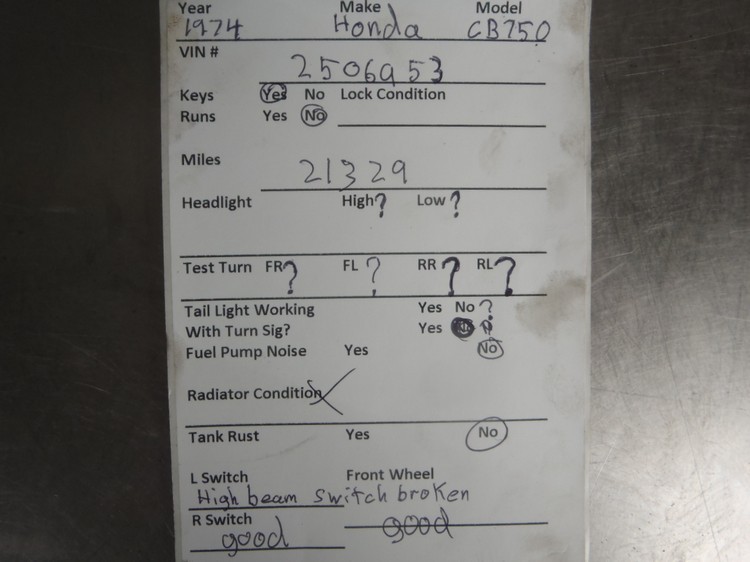 Year Make Model
1974 Honda CB750
VIN #
2506953
Keys Yes No Lock Condition
Runs Yes No
Miles
21329
Headlight High? Low?
Test Turn FR? FL? RR? RL?
Tail Light Working Yes No?
With Turn Sig? Yes ?
Fuel Pump Noise Yes No
Radiator Condition X
Tank Rust Yes No
L Switch Front Wheel
High beam switch broken
R Switch
good good